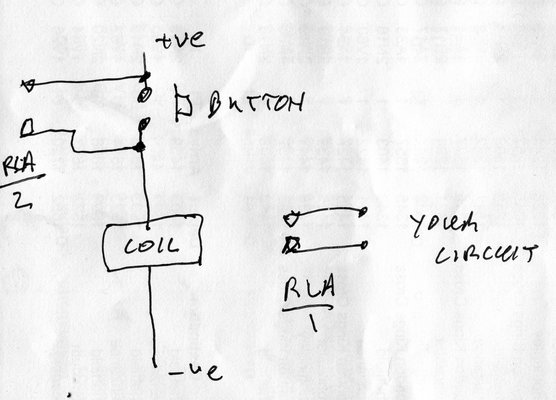 +ve
BUTTON
RLA
2
COIL
YOUR
CIRCUIT
RLA
1
-ve